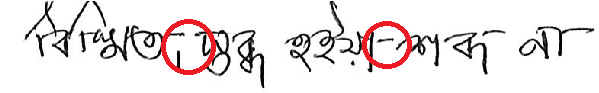 বিস্মিত, স্তব্ধ হইয়া-শব্দ না